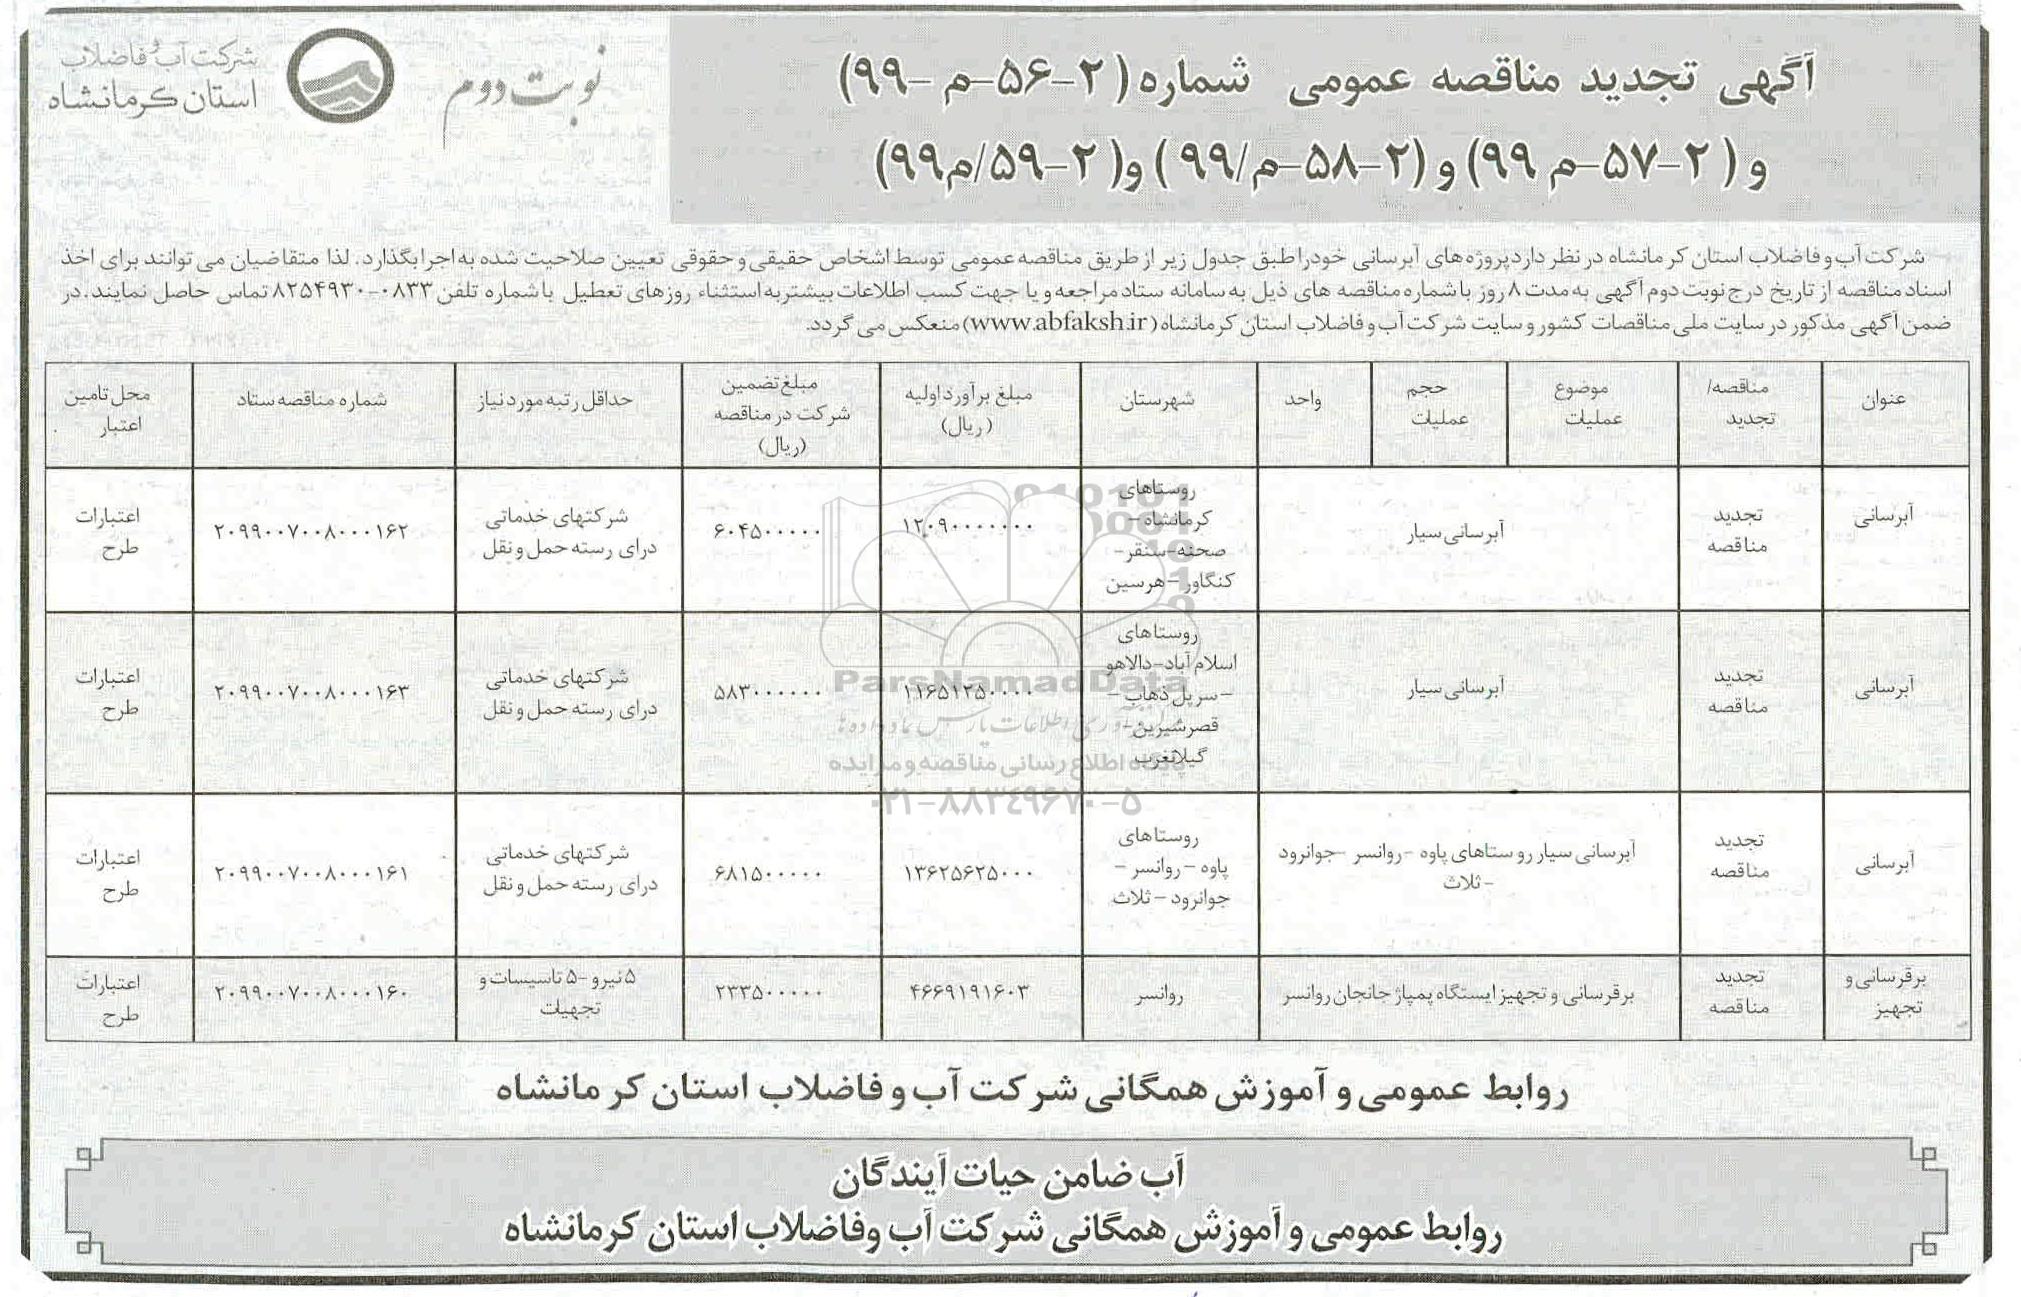 آگهی تجدید مناقصه عمومی شماره (۲-۵۶-م-۹۹)
و (۲-۵۷-م ۹۹) و (۲-۵۸-م/۹۹) و (۲-۵۹/م۹۹)
نوبت دوم
شرکت آب و فاضلاب
استان کرمانشاه
شرکت آب و فاضلاب استان کرمانشاه در نظر دارد پروژه های آبرسانی خود را طبق جدول زیر از طریق مناقصه عمومی توسط اشخاص حقیقی و حقوقی تعیین صلاحیت شده به اجرا بگذارد. لذا متقاضیان می توانند برای اخذ
اسناد مناقصه از تاریخ درج نوبت دوم آگهی به مدت ۸ روز با شماره مناقصه های ذیل به سامانه ستاد مراجعه و یا جهت کسب اطلاعات بیشتر به استثناء روزهای تعطیل با شماره تلفن ۰۸۳۳-۸۲۵۴۹۳۰ تماس حاصل نمایند. در
ضمن آگهی مذکور در سایت ملی مناقصات کشور و سایت شرکت آب و فاضلاب استان کرمانشاه (www.abfaksh.ir) منعکس می گردد.
عنوان | مناقصه/ تجدید | موضوع عملیات | حجم عملیات | واحد | شهرستان | مبلغ برآورد اولیه (ریال) | مبلغ تضمین شرکت در مناقصه (ریال) | حداقل رتبه مورد نیاز | شماره مناقصه ستاد | محل تامین اعتبار
آبرسانی | تجدید مناقصه | آبرسانی سیار | روستاهای کرمانشاه - صحنه-سنقر- کنگاور-هرسین | ۱۲۰۹۰۰۰۰۰۰۰ | ۶۰۴۵۰۰۰۰۰ | شرکتهای خدماتی درای رسته حمل و نقل | ۲۰۹۹۰۰۷۰۰۸۰۰۰۱۶۲ | اعتبارات طرح
آبرسانی | تجدید مناقصه | آبرسانی سیار | روستاهای اسلام آباد-دالاهو -سرپل ذهاب- قصرشیرین- گیلانغرب | ۱۱۶۵۱۲۵۰۰۰۰ | ۵۸۳۰۰۰۰۰۰ | شرکتهای خدماتی درای رسته حمل و نقل | ۲۰۹۹۰۰۷۰۰۸۰۰۰۱۶۳ | اعتبارات طرح
آبرسانی | تجدید مناقصه | آبرسانی سیار روستاهای پاوه -روانسر -جوانرود -ثلاث | روستاهای پاوه -روانسر- جوانرود -ثلاث | ۱۳۶۲۵۶۲۵۰۰۰ | ۶۸۱۵۰۰۰۰۰ | شرکتهای خدماتی درای رسته حمل و نقل | ۲۰۹۹۰۰۷۰۰۸۰۰۰۱۶۱ | اعتبارات طرح
برقرسانی و تجهیز | تجدید مناقصه | برقرسانی و تجهیز ایستگاه پمپاژ جانجان روانسر | روانسر | ۴۶۶۹۱۹۱۶۰۳ | ۲۳۳۵۰۰۰۰۰ | ۵ نیرو -۵ تاسیسات و تجهیات | ۲۰۹۹۰۰۷۰۰۸۰۰۰۱۶۰ | اعتبارات طرح
ParsNamadData
پایگاه اطلاع رسانی مناقصه و مزایده
۰۲۱-۸۸۳۴۹۶۷۰-۵
روابط عمومی و آموزش همگانی شرکت آب و فاضلاب استان کرمانشاه
آب ضامن حیات آیندگان
روابط عمومی و آموزش همگانی شرکت آب وفاضلاب استان کرمانشاه